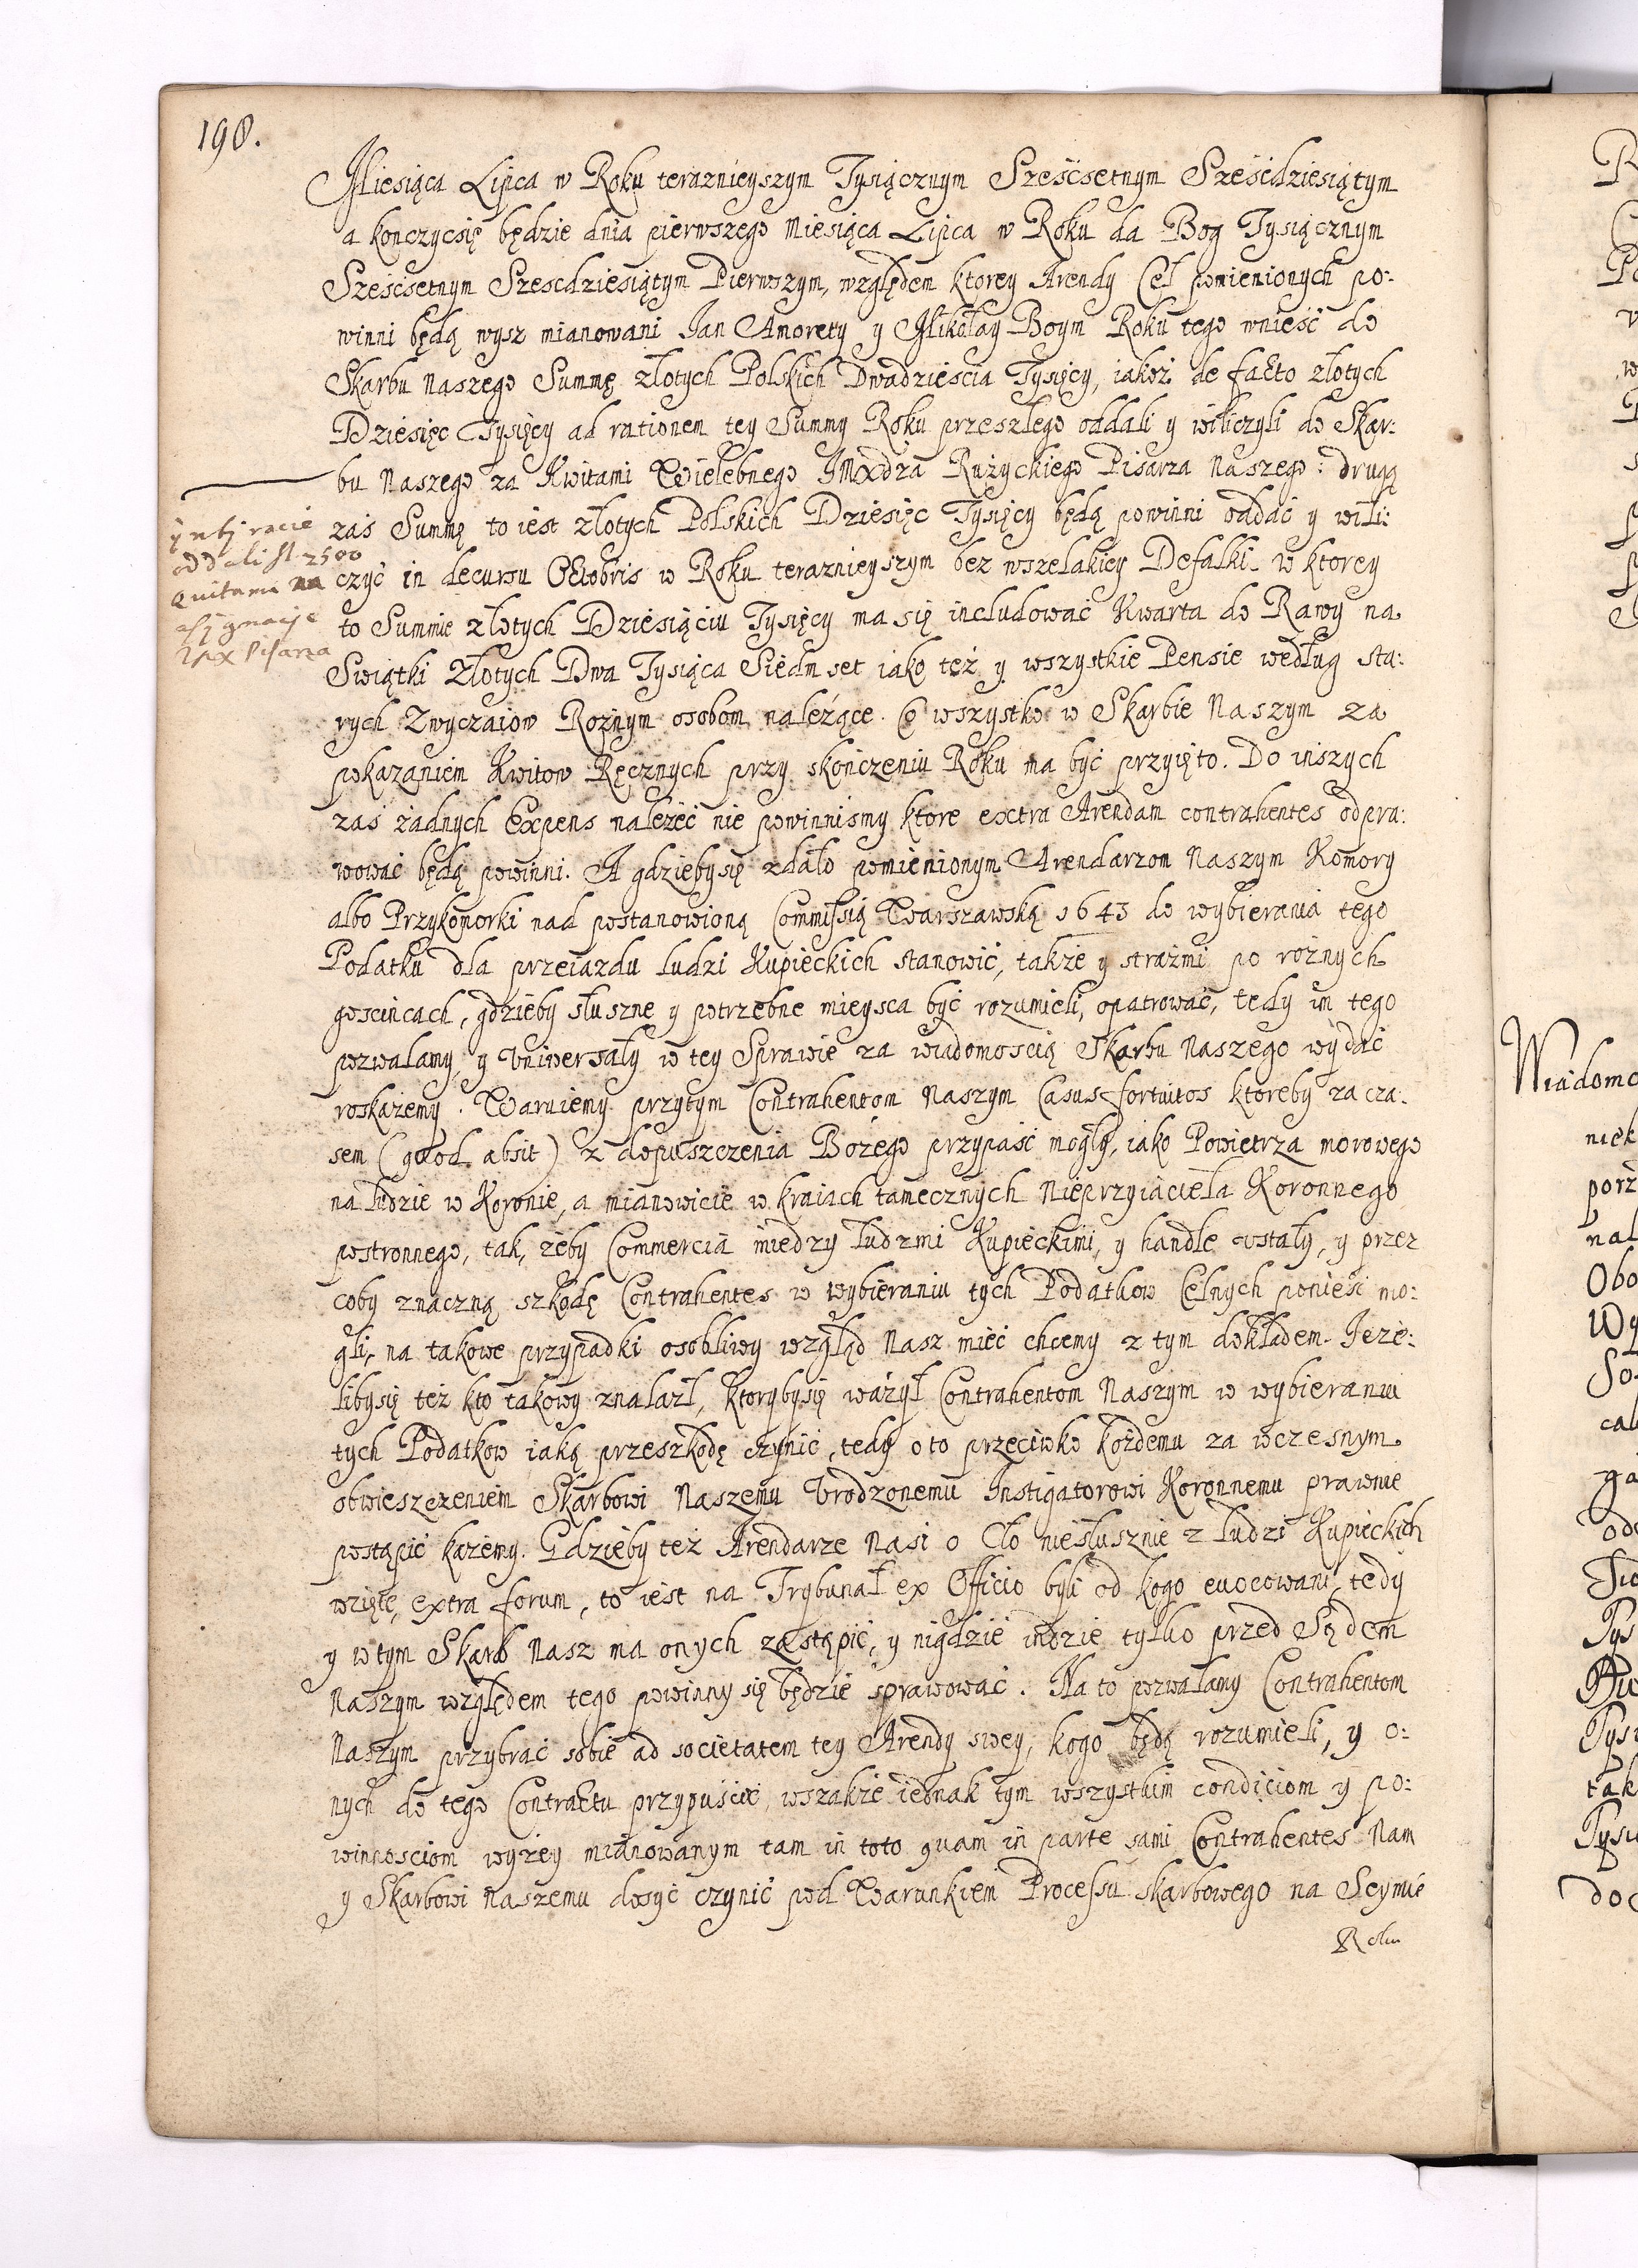 198.
Miesiąca Lipca w Roku teraznieyszym Tysiącznym Sześćsetnym Sześćdziesiątym
a konczycsię będzie dnia pierwszego Miesiąca Lipca w Roku da Bog Tysiącznym
Sześćsetnym Szescdziesiątym Pierwszym, względem ktorey Arendy Ceł pomienionych po:
winni będą wysz mianowani Jan Amorety y Mikołay Boym Roku tego wnieść do
Skarbu Naszego Summę złotych Polskich Dwadzieścia Tysięcy, iakoż de facto złotych
Dziesięc Tysięcy ad rationem tey Summy Roku przeszłego oddali y wiliczyli do Skar:
bu Naszego za Kwitami Wielebnego JMXdza Rużyckiego Pisarza Naszego: drugą
zaś Summę to iest złotych Polskich Dziesięc Tysięcy będą powinni oddać y wili:
czyć in decursu Octobris w Roku teraznieyszym bez wszelakiey Defalki. w ktorey
to Summie złotych Dziesiąciu Tysięcy ma się includować Kwarta do Rawy na
Swiątki złotych Dwa Tysiąca Siedm set iako też y wszystkie Pensie według sta:
rych Zwyczaiow Rożnym osobom należące. Co wszystko w Skarbie Naszym za
pokazaniem Kwitow Ręcznych przy skończeniu Roku ma być przyięto. Do inszych
zaś żadnych Expens należeć nie powinnismy ktore extra Arendam contrahentes odpra:
wować będą powinni. A gdziebysię zdało pomienionym Arendarzom Naszym Komory
albo Przykomorki nad postanowioną Commissią Warszawską 1643 do wybierania tego
Podatku dla przeiazdu ludzi Kupieckich stanowić, także y strażmi po rożnych
gościncach, gdzieby słuszne y potrzebne mieysca być rozumieli, opatrować, tedy im tego
pozwalamy, y Vniwersały w tey Sprawie za wiadomoscią Skarbu Naszego wydać
roskażemy. Waruiemy przytym Contrahentom Naszym Casus fortuitos ktoreby za cza:
sem (quod absit) z dopuszczenia Bożego przypaść mogły, iako Powietrza morowego
na ludzie w Koronie, a mianowicie w kraiach tamecznych Nieprzyiaciela Koronnego
postronnego, tak, żeby Commercia miedzy ludzmi Kupieckimi, y handle vstały, y przez
coby znaczną szkodę Contrahentes w wybieraniu tych Podatkow Celnych ponieśi mo:
gli, na takowe przypadki osobliwy wzgląd Nasz mieć chcemy z tym dokładem. Jeże:
libysię też kto takowy znalazł, ktorybysię ważył Contrahentom Naszym w wybieraniu
tych Podatkow iaką przeszkodę czynić, tedy o to przeciwko kożdemu za wczesnym
obwieszczeniem Skarbowi Naszemu Vrodzonemu Instigatorowi Koronnemu prawnie
postąpić każemy. Gdzieby też Arendarze Nasi o Cło niesłusznie z ludzi Kupieckich
wzięte, extra forum, to iest na Trybunał ex Officio byli od kogo euocowani, tedy
y w tym Skarb Nasz ma onych zastąpić, y nigdzie indzie tylko przed Sądem
Naszym względem tego powinny się będzie sprawować. Na to pozwalamy Contrahentom
Naszym przybrać sobie ad societatem tey Arendy swey, kogo będą rozumieli, y o:
nych do tego Contractu przypuścić, wszakże iednak tym wszystkim condiciom y po:
winnosciom wyżey mianowanym tam in toto quam in parte sami Contrahentes Nam
y Skarbowi Naszemu dosyć czynić pod Warunkiem Processu skarbowego na Seymie
Roku
oddali fl 2500
assignacje
Pisarza
Wiadomo